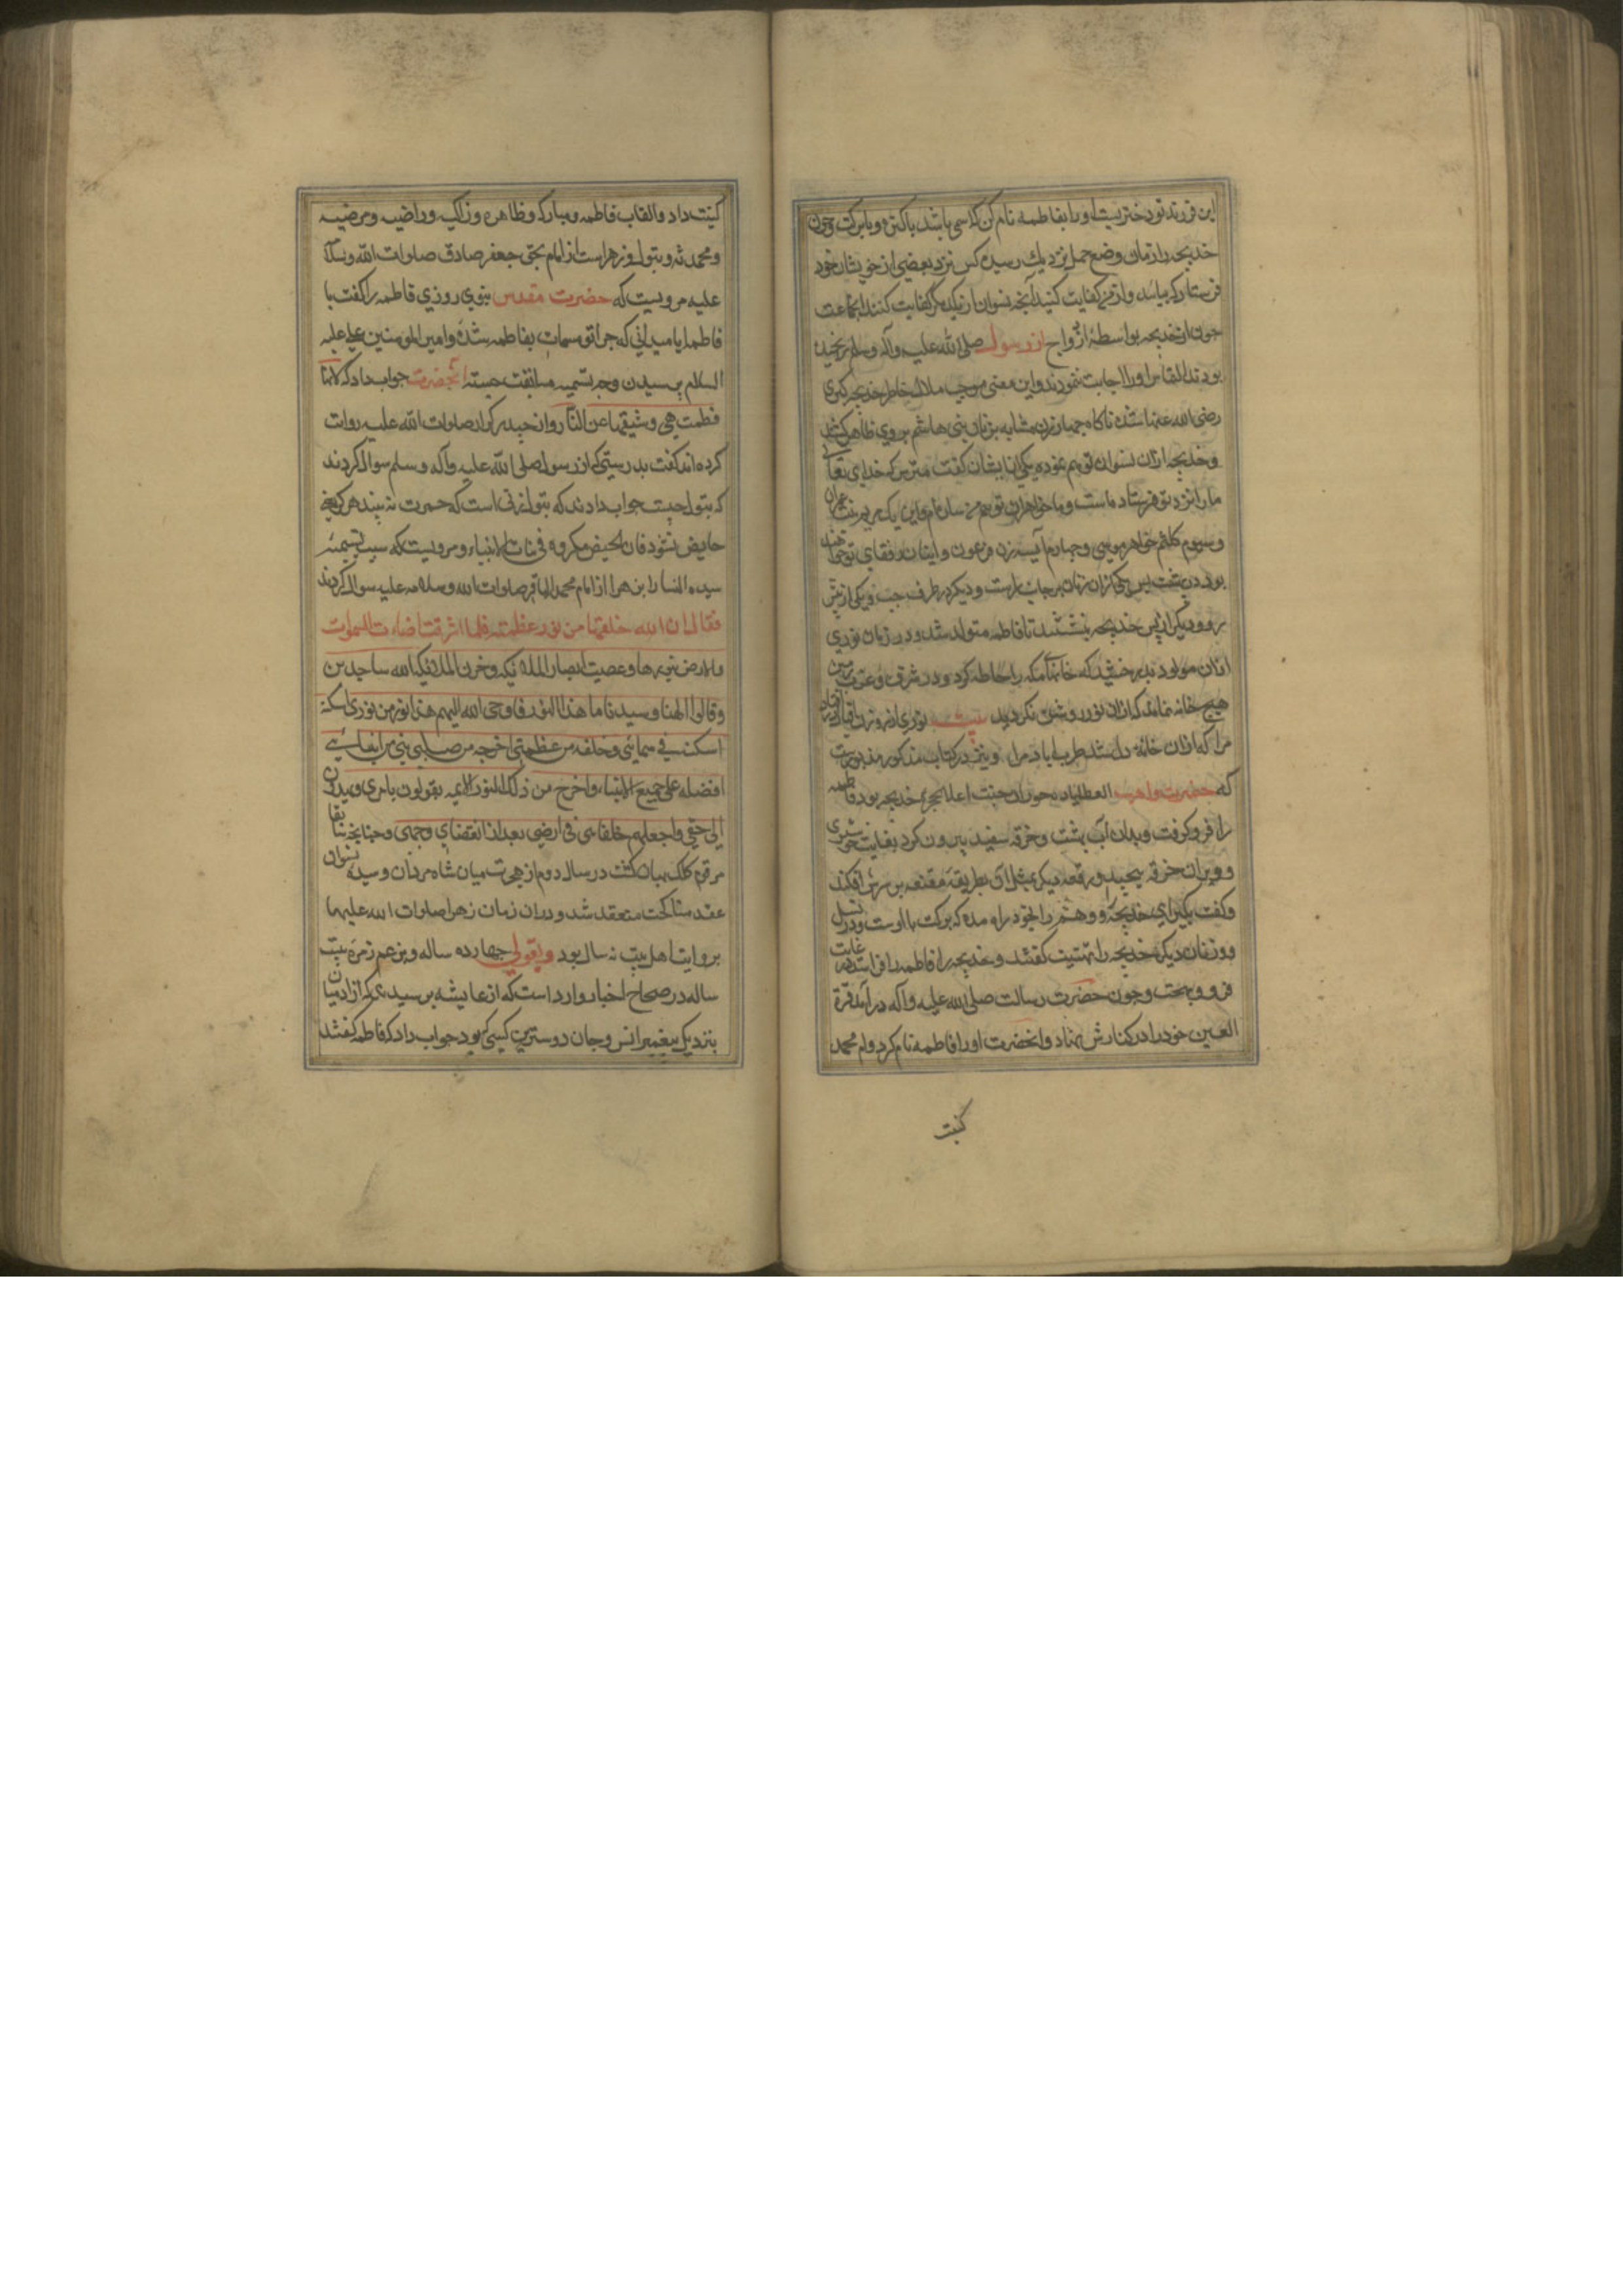 این فرزند تو دختریست او را بفاطمه نام کن که اسمی باشد پاکیزه و با برکت و چون
خدیجه را زمان وضع حمل نزدیک رسید کس نزد بعضی از خویشان خود
فرستاد که بیایند و از من کفایت کنید آنچه نسوان از یکدیگر کفایت کنند آن جماعت
چون از خدیجه بواسطهٔ ازواج از رسول صلی الله علیه وآله وسلم رنجیده
بودند التماس او را اجابت ننمودند و این معنی موجب ملال خاطر خدیجه کبری
رضی الله عنها شده ناکاه چهار زن مشابه بزنان بنی هاشم بروی ظاهر کشتند
و خدیجه از آن نسوان توهم نموده یکی از ایشان کفت مترس که خدای تعالی
ما را نزد تو فرستاده است و ما خواهران توهم من ساره‌ام و این یک مریم بنت عمران
و سیوم کلثم خواهر موسی و چهارم آسیه زن فرعون و ایشان رفقای تو خواهند
بود در بهشت پس یکی از آن زنان بر جانب راست و دیکر در طرف چپ و یکی از پیش
رو و دیکر از پس خدیجه بنشستند تا فاطمه متولد شد و در زمان نوری
از آن مولود بدرخشید که خانهای مکه را احاطه کرد و در شرق و غرب زمین
هیچ خانه نماند که از آن نور روشن نکردید بیت نوری
مرا که از آن خانه دل شد طرب اباد مرا و نیز در کتاب مذکور مزبورست
که حضرت واهب العطایا ده حور از جنت اعلا بحجره خدیجه بود فاطمه
را فرو کرفت و بدان آب بشست و خرقه سفید بیرون کرد بغایت خوشبوی
و ویرا در آن خرقه پیچید و رقعه دیکر مثل آن بطریقهٔ مقنعه بر سرش افکند
و کفت بکیر ای خدیجه و برکت با اوست و در نسل
او و زنان دیکر خدیجه را تهنیت کفتند و خدیجه فاطمه را فرا ستد در غایت
فرح و بهجت و چون حضرت رسالت صلی الله علیه وآله در آمد قرة
العین خود را در کنارش نهاد و انحضرت او را فاطمه نام کرد و ام محمد
کنیت
کنیت داد و القاب فاطمه مبارکه و طاهره و زاکیه و راضیه و مرضیه
و محدثه و بتول و زهراست از امام بحق جعفر صادق صلوات الله وسلامه
علیه مرویست که حضرت مقدس نبوی روزی فاطمه را کفت یا
فاطمه ایا میدانی که چرا تو مسمات بفاطمه شدهٔ و امیر المومنین علی علیه
السلام پرسید از وجه تسمیه انحضرت جواب داد که لانها
فطمت هی وشیعتها عن النار و از حیدر کرار صلوات الله علیه روایت
کرده اند کفت بدرستی که از رسول صلی الله علیه وآله وسلم سوال کردند
که بتول چیست جواب دادند که بتول زنی است که حمرت نه بیند هرکز یعنی
حایض نشود فان الحیض مکروه فی بنات الانبیاء و مرویست که سبب تسمیهٔ
سیده النسا را بزهرا از امام محمد الباقر صلوات الله وسلامه علیه سوال کردند
فقال ان الله خلقها من نور عظمته فلما اشرقت اضاءت السموات
والارض بنورها وغصیت ابصار الملائکه وخرت الملائکه لله ساجدین
وقالوا الهنا وسیدنا ما هذا النور فاوحی الله الیهم هذا نور من نوری اسکنه
اسکنته فی سمائی وخلقته من عظمتی اخرجه من صلب نبی من انبیائی
افضله علی جمیع الانبیاء واخرج من ذلک النور الایمه یقومون بامری ویهدون
الی حقی واجعلهم خلفائی فی ارضی بعد انقضای وحیی و چنانچه سابقا
مرقوم کلک بیان کشت در سال دوم از هجرت میان شاه مردان و سیده نسوان
عقد مناکحت منعقد شد و در آن زمان زهرا صلوات الله علیها
بروایت اهل بیت نه سال بود و بقولی چهارده ساله و بزعم زمره بیست
ساله در صحاح اخبار وارد است که از عایشه پرسیدند که از ادمیان
بنزدیک پیغمبر انس و جان دوسترین کسی که بود جواب داد که فاطمه کفتند